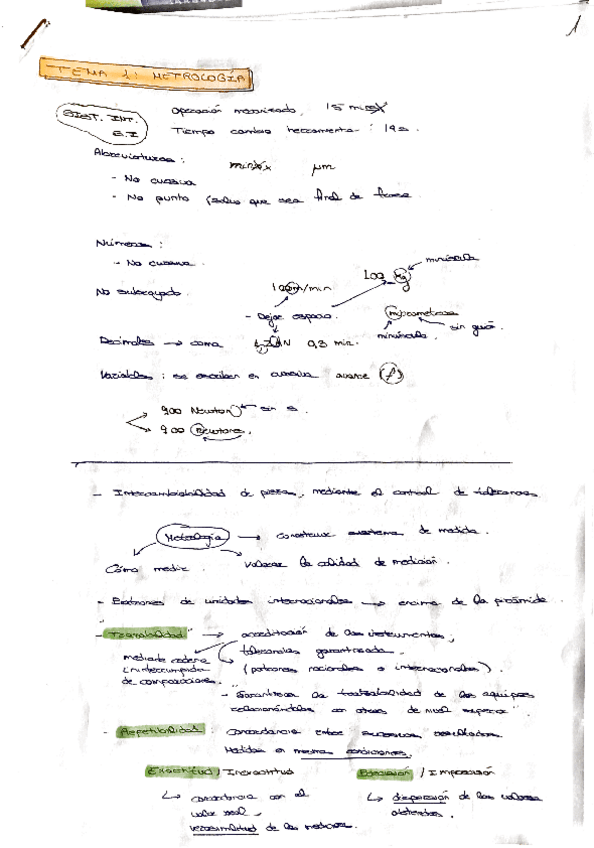 1
TEMA 1: METROLOGÍA
SIST. INT. S.I
Operación mecanizado, 15 min
Tiempo cambio herramienta: 14 s.
Abreviaturas:
min μm
- No cursiva
- No punto (salvo que sea final de frase
Números:
- No cursiva.
minúscula
100 kg
No subrayado.
100m/min
- Dejar espacio.
micrometros
sin guión.
minúscula.
Decimales → coma
N 0,3 min.
Variables: se escriben en cursiva avance (f)
900 Newton sin s.
900 Newtons.
- Intercambiabilidad de piezas, mediante el control de tolerancias
Metrología → construir sistema de medida.
Cómo medir. valorar la calidad de medición.
- Patrones de unidades internacionales → encima de la pirámide.
- Trazabilidad → acreditación de los instrumentos,
tolerancias garantizada.
mediante cadena ininterrumpida de comparaciones.
(patrones nacionales o internacionales).
- Garantizar la trazabilidad de los equipos
relacionándolos con otros de nivel superior"
- Repetibilidad: Concordancia entre sucesivos resultados
Medidos en mismas condiciones.
Exactitud / Incorrectitud Precisión / Imprecisión
↳ concordancia con el valor real,
verosimilitud de las medidas.
↳ dispersión de los valores obtenidos.